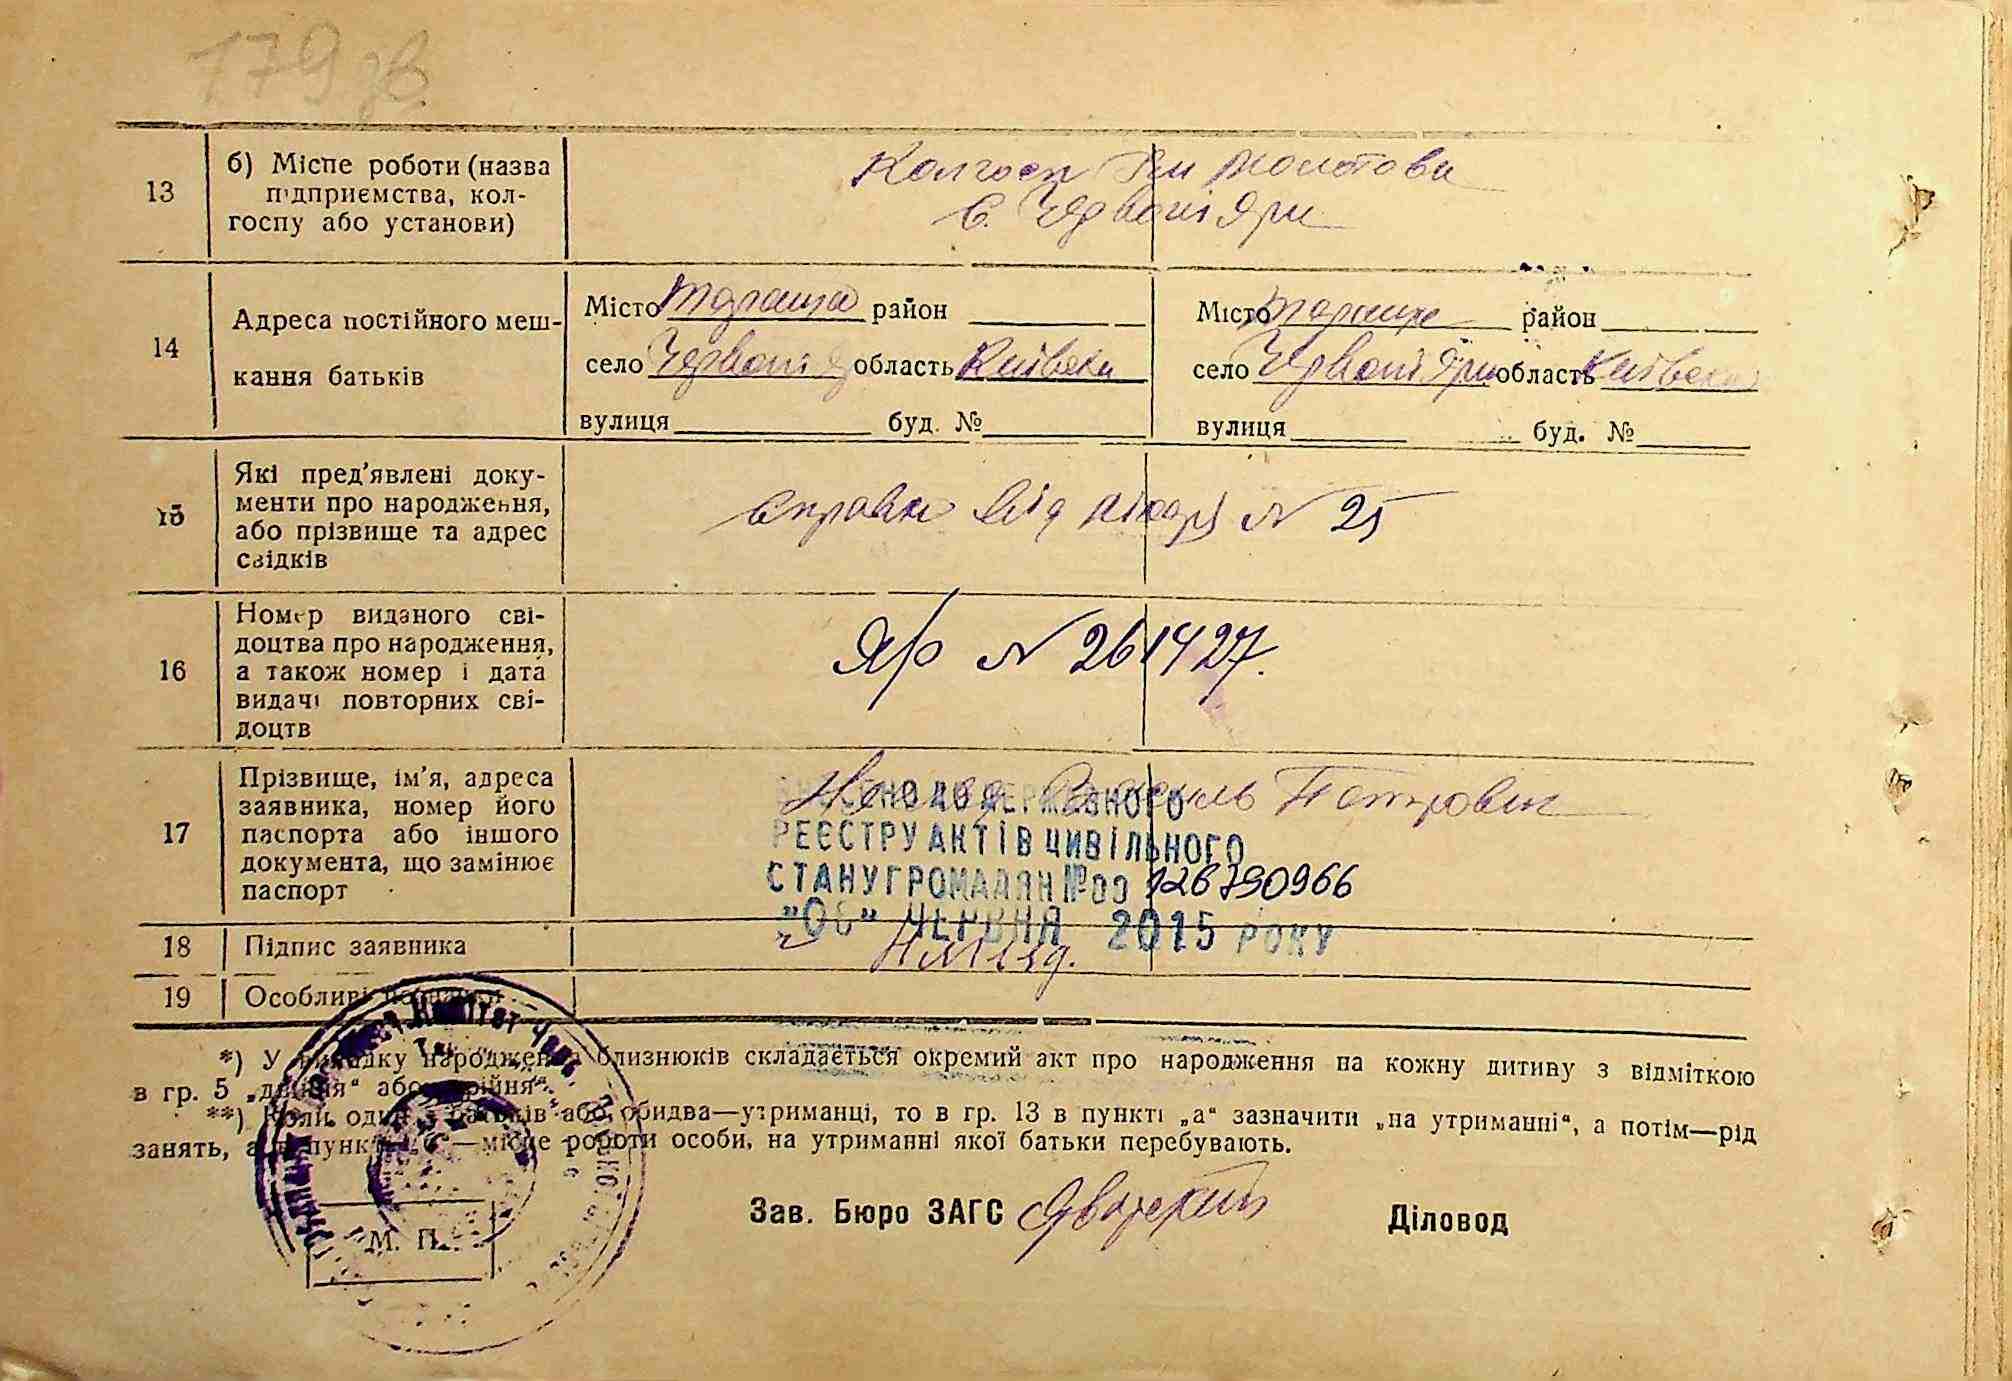 179 зв
13
б) Місце роботи (назва
підприємства, кол-
госпу або установи)
Колгосп Ім Молотова
с. Червоні Яри
14
Адреса постійного меш-
кання батьків
Місто Тараща район
село Червоні Яр область Київська
вулиця буд. №
Місто район
село Червоні Яри область Київська
вулиця буд. №
15
Які пред'явлені доку-
менти про народження,
або прізвище та адрес
свідків
справка від № 25
16
Номер виданого сві-
доцтва про народження,
а також номер і дата
видачі повторних сві-
доцтв
ЯР № 261427.
17
Прізвище, ім'я, адреса
заявника, номер його
паспорта або іншого
документа, що замінює
паспорт
Василь Петрович
ВНЕСЕНО ДО ДЕРЖАВНОГО
РЕЄСТРУ АКТІВ ЦИВІЛЬНОГО
СТАНУ ГРОМАДЯН №00 126790966
"06" ЧЕРВНЯ 2015 РОКУ
18
Підпис заявника
19
Особливі
*) У випадку народження близнюків складається окремий акт про народження на кожну дитину з відміткою
в гр. 5 „двійня“ або „трійня“.
**) Коли один з батьків або обидва—утриманці, то в гр. 13 в пункті „а“ зазначити „на утриманні“, а потім—рід
занять, а в пункті „б“—місце роботи особи, на утриманні якої батьки перебувають.
М. П.
Зав. Бюро ЗАГС
Діловод